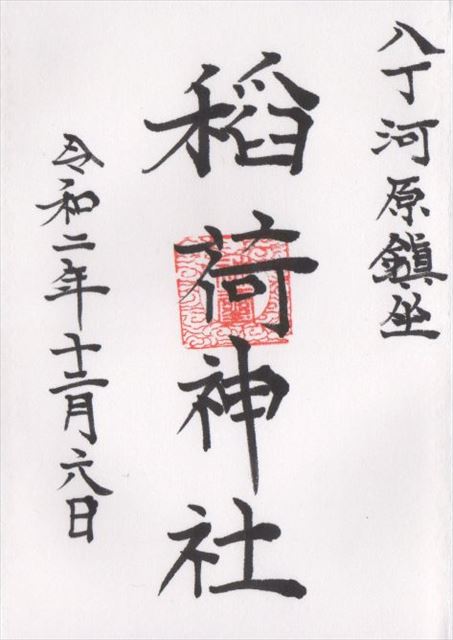 八丁河原鎮坐
稲荷神社
令和二年十二月六日